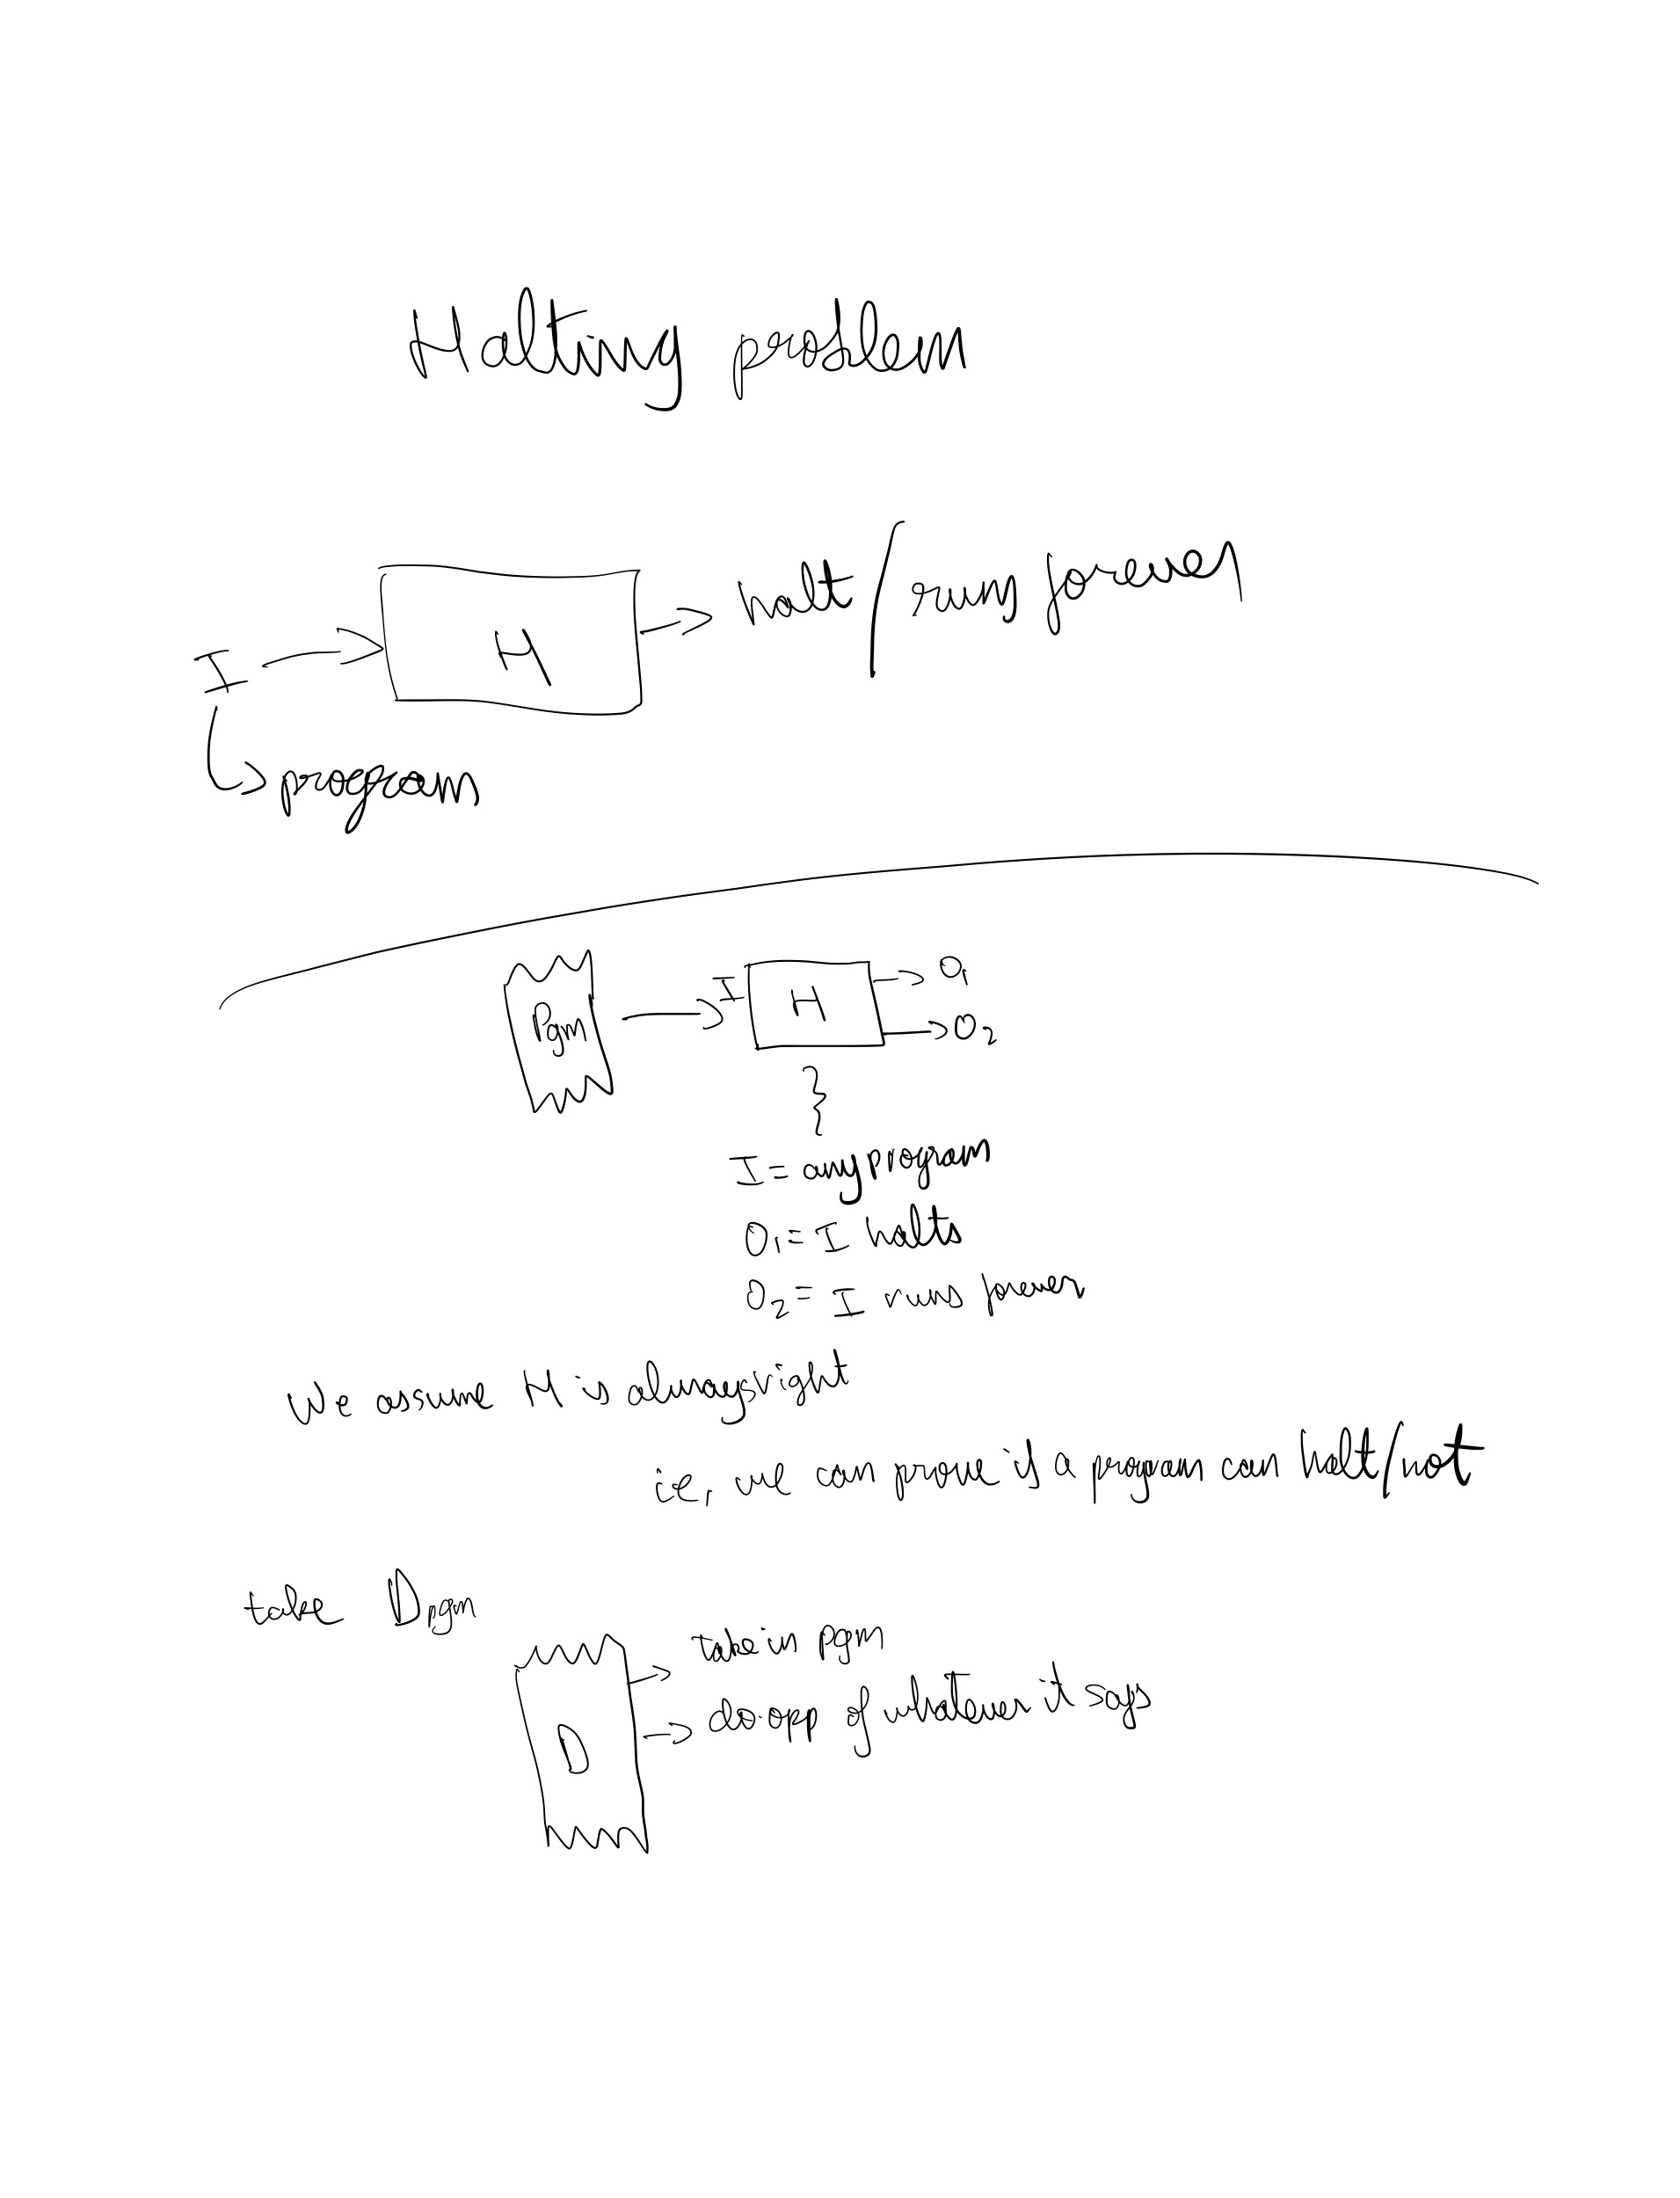 Halting problem
I → H → halt / runs forever
program
Pgm → I H → O1
→ O2
I = any program
O1 = I halts
O2 = I runs forever
We assume H is always right
ie, we can prove if a program can halt/not
take Dpgm
D → take in pgm
→ do opp of whatever it says